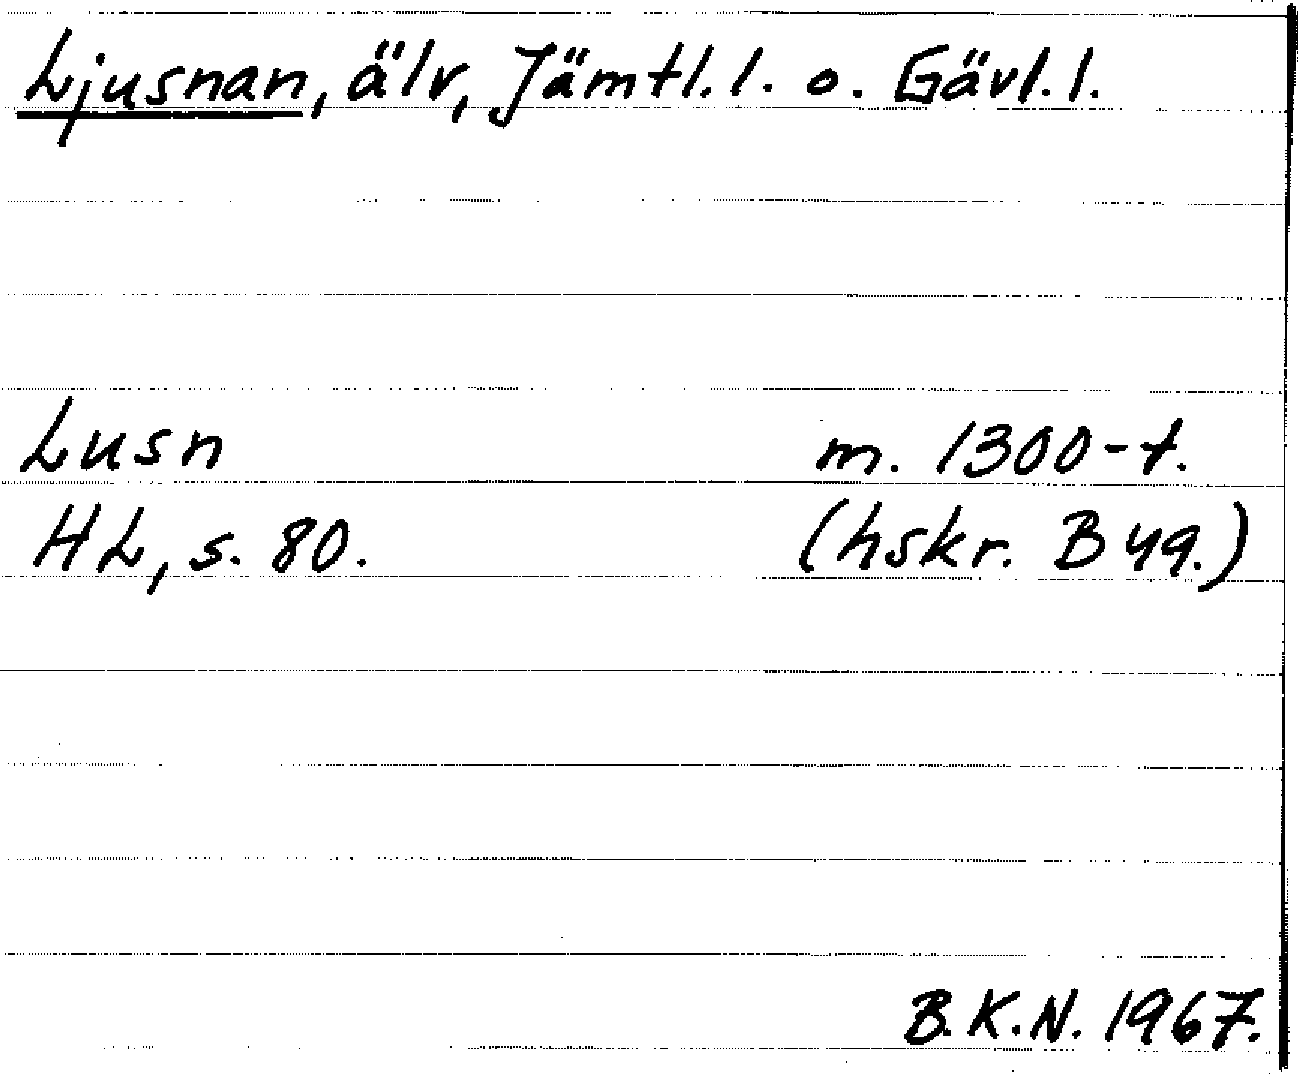 Ljusnan, älv, Jämtl. l. o. Gävl. l.
Lusn m. 1300-t.
HL, s. 80. (hskr. B 49.)
B.K.N. 1967.